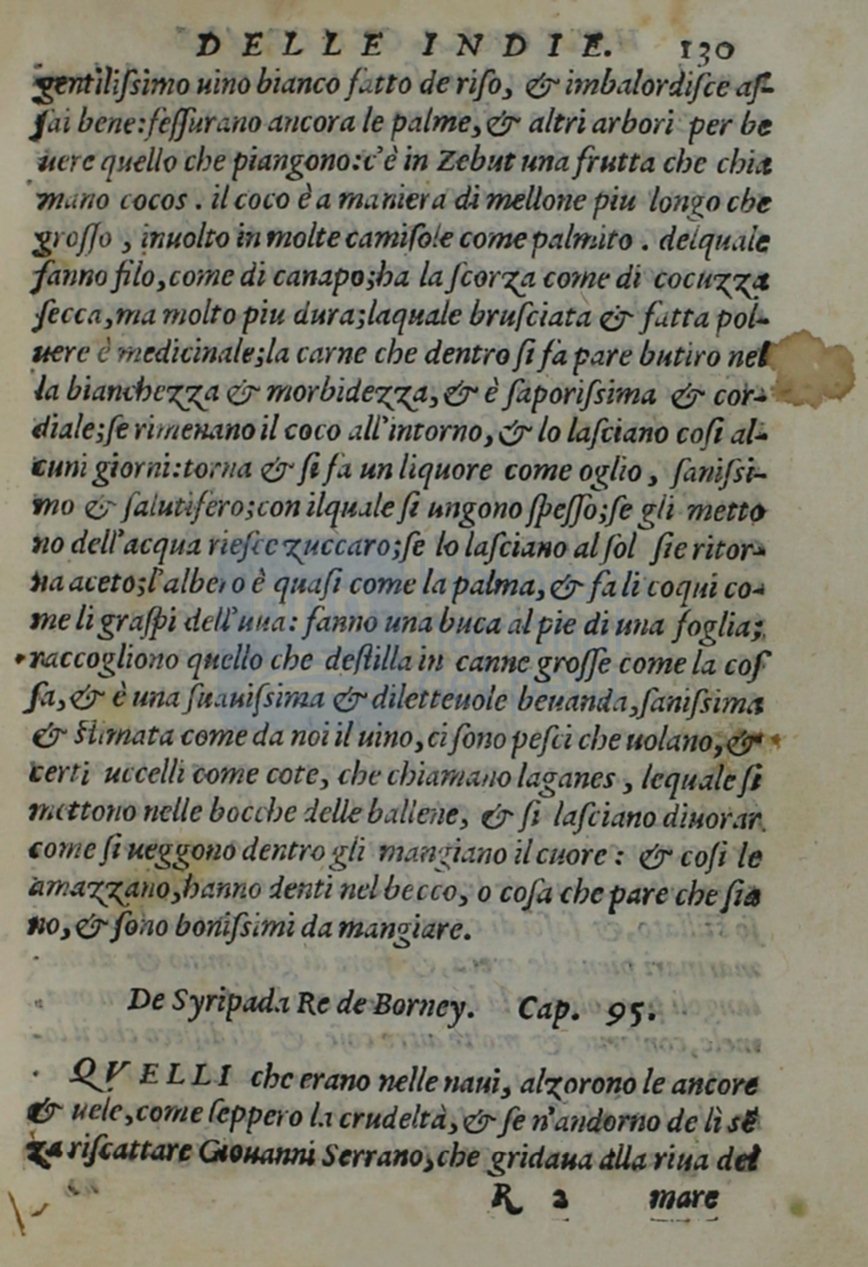 DELLE INDIE. 130
gentiliſsimo uino bianco fatto de riſo, & imbalordiſce aſ-
ſai bene:feſſurano ancora le palme, & altri arbori per be
uere quello che piangono:c'è in Zebut una frutta che chia
mano cocos. il coco è a maniera di mellone piu longo che
groſſo, inuolto in molte camiſole come palmito. delquale
fanno filo, come di canapo;ha la ſcorza come di cocuzza
ſecca, ma molto piu dura;laquale bruſciata & fatta pol-
uere è medicinale;la carne che dentro ſi fa pare butiro nel
la bianchezza & morbidezza, & è ſaporiſsima & cor-
diale;ſe rimenano il coco all'intorno, & lo laſciano coſi al-
cuni giorni:torna & ſi fa un liquore come oglio, ſaniſsi-
mo & ſalutifero;con ilquale ſi ungono ſpeſſo;ſe gli metto
no dell'acqua rieſce zuccaro;ſe lo laſciano al ſol ſie ritor-
na aceto;l'albero è quaſi come la palma, & fa li coqui co-
me li graſpi dell'uua: fanno una buca al pie di una foglia;
raccogliono quello che deſtilla in canne groſſe come la coſ
ſa, & è una ſuauiſsima & diletteuole beuanda, ſaniſsima
& ſtimata come da noi il uino, ci ſono peſci che uolano, &
certi uccelli come cote, che chiamano laganes, lequale ſi
mettono nelle bocche delle ballene, & ſi laſciano diuorar
come ſi ueggono dentro gli mangiano il cuore: & coſi le
amazzano, hanno denti nel becco, o coſa che pare che ſia
no, & ſono boniſsimi da mangiare.
De Syripada Re de Borney. Cap. 95.
QVELLI che erano nelle naui, alzorono le ancore
& uele, come ſeppero la crudeltà, & ſe n'andorno de lì sẽ
za riſcattare Giouanni Serrano, che gridaua alla riua del
R 2 mare